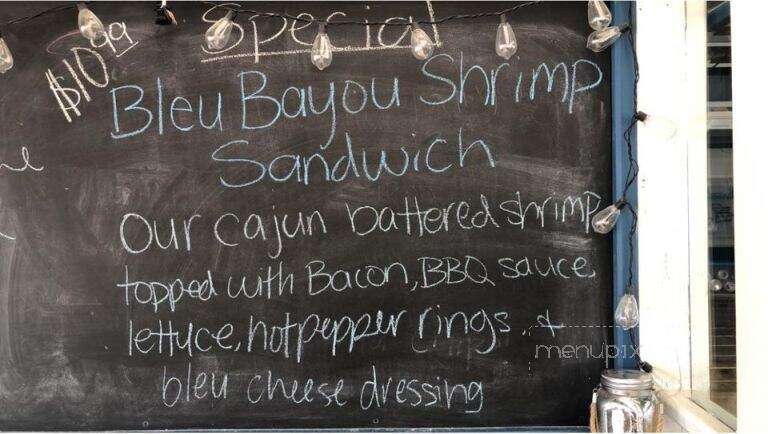 $10.99
Special
Bleu Bayou Shrimp
Sandwich
Our cajun battered shrimp
topped with Bacon, BBQ sauce,
lettuce, hot pepper rings, &
bleu cheese dressing
menupix